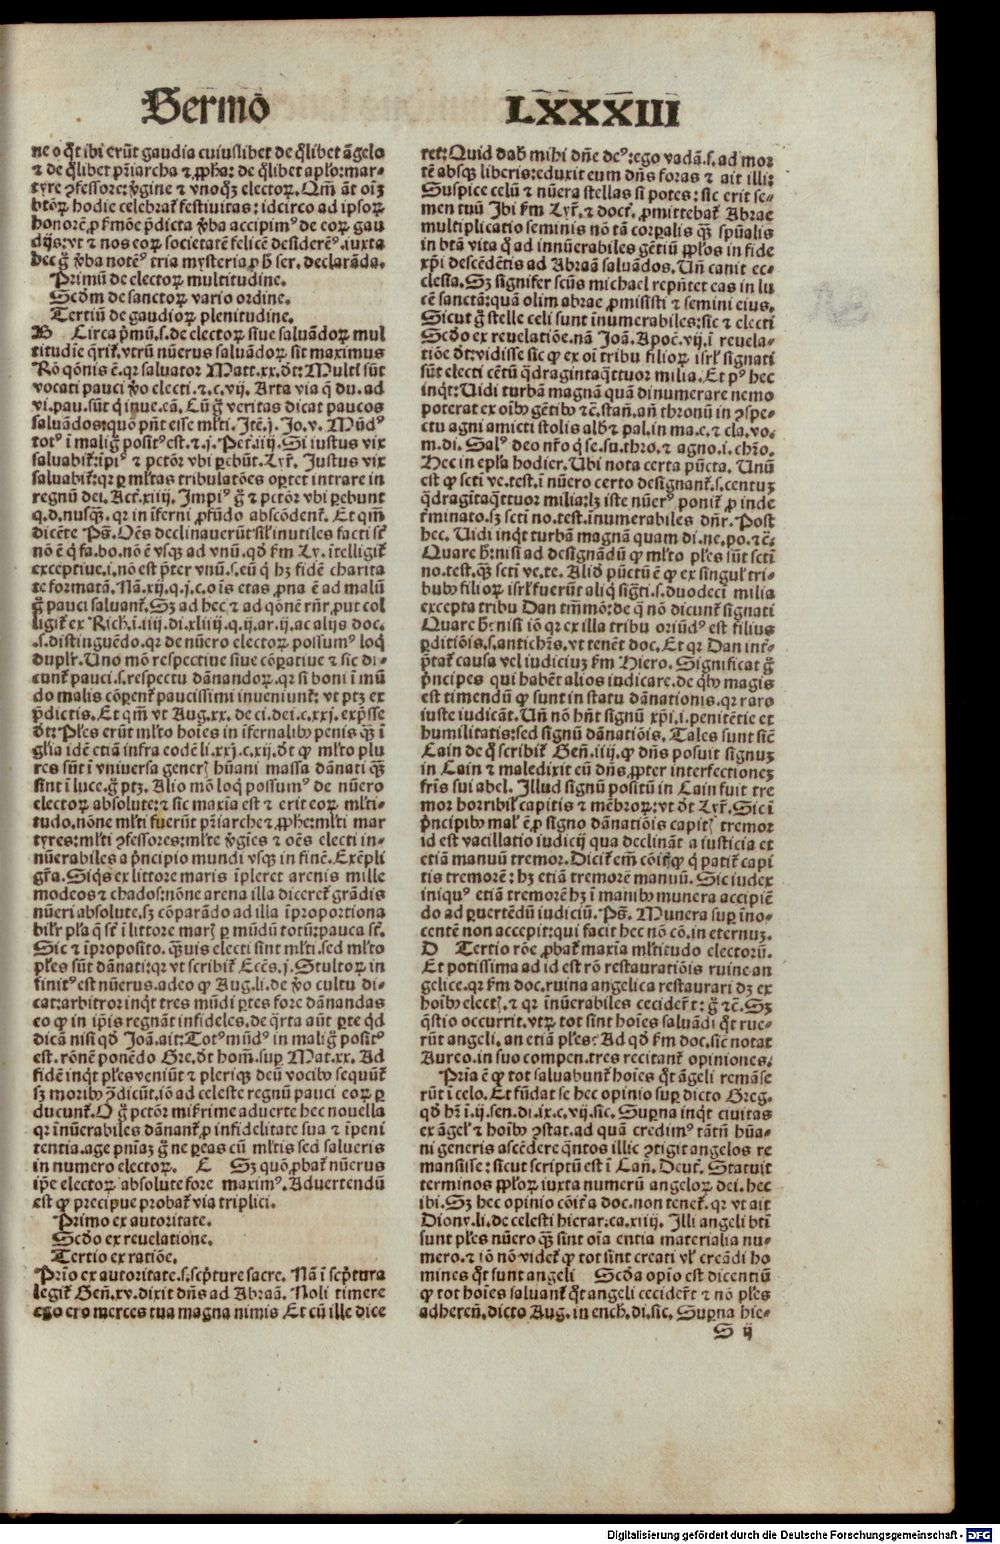 Sermo LXXXIII
ne o q̃t ibi erũt gaudia cuiuslibet de q̃libet ãgelo
⁊ de q̃libet p̃riarcha ⁊ ꝓpha: de q̃libet aplo: mar-
tyre ꝯfessore: v̾gine ⁊ vnoq̃ꝫ electoꝝ. Qm̃ ãt oĩꝫ
btõꝝ hodie celebrat̃ festiuitas: idcirco ad ipsoꝝ
honorẽ ꝓ fmõe p̃dicta v̾ba accipimꝰ de coꝝ gau
dijs: vt ⁊ nos eoꝝ societatẽ felicẽ desiderẽꝰ. iuxta
hec g̃ v̾ba notẽꝰ tria mysteria ꝑ h̃ ser. declarãda.
Primũ de electoꝝ multitudine.
Scd̾m de sanctoꝝ vario ordine.
Tertiũ de gaudioꝝ plenitudine.
B Circa p̾mũ. s. de electoꝝ siue saluãdoꝝ mul
titudie q̃rit̃. vtrũ nũerus saluãdoꝝ sit maximus
Rõ q̃onis ẽ. qꝛ saluator Matt. xx. d̃t: Multi sũt
vocati pauci v̾o electi. ⁊. c. vij. Arta via q̃ du. ad
vi. pau. sũt q̾ inue. eã. Cũ g̃ veritas dicat paucos
saluãdos: quõ pñt eise ml̾ti. Itẽ. j. Jo. v. Mũdꝰ
totꝰ ĩ malig̃ positꝰ est. ⁊. j. Pet̾. iiij. Si iustus vix
saluabit̃: ĩpiꝰ ⁊ pctõr vbi ꝑebũt. Lyr̃. Justus vix
saluabit̃: qꝛ ꝑ ml̾tas tribulatões oꝑtet intrare in
regnũ dei. Act̃. xiiij. Impiꝰ g̃ ⁊ pctõr vbi ꝑebunt
q. d. nusq̃ꝫ. qꝛ in ĩferni ꝓfũdo abscõdent̃. Et qm̃
dicẽte Ps̃. Oẽs declinauerũt sil̾ inutiles facti st̃
nõ ẽ q̾ fa. bo. nõ ẽ vsq̃ ad vnũ. qd̾ fm̃ Ly. ĩtelligit̃
exceptiue. i. nõ est p̃ter vnũ. s. eũ q̾ hꝫ fidẽ charita
te formatã. Nã. xij. q. j. c. oĩs etas ꝓna ẽ ad malũ
g̃ pauci saluant̃. Sꝫ ad hec ⁊ ad q̃onẽ rñr ꝓut col
ligit̃ ex Rich. i. iiij. di. xliiij. q. ij. ar. ij. ac alijs doc.
.s. distinguẽdo. qꝛ de nũero electoꝝ possumꝰ loq̾
duplr̃. Uno mõ respectiue siue cõꝑatiue ⁊ sic di-
cunt̃ pauci. s. respectu dãnandoꝝ. qꝛ si boni ĩ mũ
do malis cõꝑent̃ paucissimi inueniunt̃: vt ptꝫ ex
p̃dictis. Et qm̃ vt Aug. xx. de ci. dei. c. xxj. exp̃sse
d̃t: Pl̃es erũt ml̾to hoĩes in ĩfernalib⁹ penis q̃ꝫ ĩ
gl̾ia idẽ etiã infra eodẽ li. xxj. c. xij. d̃t ꝙ ml̾to plu
res sũt ĩ vniuersa generꝭ hũani massa dãnati q̃ꝫ
sint ĩ luce. g̃ ptꝫ. Alio mõ loq̾ possumꝰ de nũero
electoꝝ absolute: ⁊ sic maxĩa est ⁊ erit eoꝝ ml̾ti-
tudo. nõne ml̾ti fuerũt p̃riarche ⁊ ꝓphe: ml̾ti mar
tyres: ml̾ti ꝯfessores: ml̾te v̾gĩes ⁊ oẽs electi in-
nũerabiles a p̾ncipio mundi vsq̃ in finẽ. Exẽpli
gr̃a. Siq̾s ex littore maris ĩpleret arenis mille
modeos ⁊ chados: nõne arena illa diceret̃ grãdis
nũeri absolute. sꝫ cõparãdo ad illa ĩproportiona
bilr̾ pl̃a q̃ st̃ ĩ littore marꝭ ꝑ mũdũ totũ: pauca st̃.
Sic ⁊ ĩproposito. q̃ꝫuis electi sint ml̾ti. sed ml̾to
pl̃es sũt dãnati: qꝛ vt scribit̃ Ecc̃s. j. Stultoꝝ in
finitꝰ est nũerus. adeo ꝙ Aug. li. de v̾o cultu di-
cat: arbitror inq̾t tres mũdi ꝑtes fore dãnandas
eo ꝙ in ip̃is regnãt infideles. de q̃rta aũt ꝑte q̾d
dicã nisi qd̾ Joã. ait: Totꝰ mũdꝰ in malig̃ positꝰ
est. rõnẽ ponẽdo Gre. d̃t hom̃. suꝑ Mat. xx. Ad
fidẽ inq̾t pl̃es veniũt ⁊ pleriq̃ deũ vocib⁹ sequũt̃
sꝫ morib⁹ ꝯdicũt. iõ ad celeste regnũ pauci eoꝝ ꝑ
ducunt̃. O g̃ pctõr mi ktrime aduerte hec nouella
qꝛ ĩnũerabiles dãnant̃ ꝓ infidelitate sua ⁊ ĩpeni
tentia. age pniãꝫ g̃ ne ꝑeas cũ ml̾tis sed salueris
in numero electoꝝ. C Sꝫ quõ ꝓbat̃ nũerus
ip̃e electoꝝ absolute fore maximꝰ. Aduertendũ
est ꝙ precipue probat̃ via triplici.
Primo ex autoritate.
Scd̾o ex reuelatione.
Tertio ex ratiõe.
Prĩo ex autoritate. s. scp̾ture sacre. Nã ĩ scp̾tura
legit̃ Geñ. xv. dixit dñs ad Abraã. Noli timere
ego ero merces tua magna nimis Et cũ ille dice
ret: Quid dab̾ mihi dñe deꝰ: ego vadã. s. ad mor
tẽ absq̃ liberis: eduxit eum dñs foras ⁊ ait illi:
Suspice celũ ⁊ nũera stellas si potes: sic erit se-
men tuũ Ibi fm̃ Lyr̃. ⁊ doct̃. ꝓmittebat̃ Abrae
multiplicatio seminis nõ tã corꝑalis q̃ꝫ spũalis
in btã vita q̃ ad innũerabiles gẽtiũ ppl̾os in fide
xp̃i descẽdẽtis ad Abraã saluãdos. Uñ canit ec-
clesia. Sꝫ signifer sctũs michael repñtet eas in lu
cẽ sanctã: quã olim abrae ꝓmisisti ⁊ semini eius.
Sicut g̃ stelle celi sunt ĩnumerabiles: sic ⁊ electi
Scd̾o ex reuelatiõe. nã Joã. Apoc̃. vij. ĩ reuela-
tiõe d̃t: vidisse sic ꝙ ex oĩ tribu filioꝝ isrl̾ signati
sũt electi cẽtũ q̃dragintaq̃ttuor milia. Et pꝰ hec
inq̾t: Uidi turbã magnã quã dinumerare nemo
poterat ex oĩb⁹ gẽtib⁹ ⁊c̃. stañ. añ thronũ in ꝯspe-
ctu agni amicti stolis alb̾ ⁊ pal. in ma. e. ⁊ cla. vo.
m. di. Salꝰ deo nr̃o q̾ se. su. thro. ⁊ agno. i. chr̃o.
Hec in epl̾a hodier. Ubi nota certa pũcta. Unũ
est ꝙ scti ve. test. ĩ nũero certo designant̃. s. centuꝫ
q̃dragĩtaq̃ttuor milia: lꝫ iste nũerꝰ ponit̃ ꝓ inde
t̾minato. sꝫ scti no. test. ĩnumerabiles dñr. Post
hec. Uidi inq̾t turbã magnã quam di. ne. po. ⁊c̃.
Quare h̾: nisi ad designãdũ ꝙ ml̾to pl̃es sũt scti
no. test. q̃ꝫ scti ve. te. Aliud pũctũ ẽ ꝙ ex singul̾ tri-
bub⁹ filioꝝ isrl̾ fuerũt aliq̾ sig̃ti. s. duodecĩ milia
excepta tribu Dan tm̃mõ: de q̃ nõ dicunt̃ signati
Quare h̾: nisi iõ qꝛ ex illa tribu oriũdꝰ est filius
ꝑditiõis. s. antichr̃s. vt tenẽt doc. Et qꝛ Dan int̾-
p̃tat̃ causa vel iudiciuꝫ fm̃ Hiero. Significat g̃
p̾ncipes qui habẽt alios iudicare. de q̾b⁹ magis
est timendũ ꝙ sunt in statu dãnationis. qꝛ raro
iuste iudicãt. Uñ nõ hñt signũ xp̃i. i. penitẽtie et
humilitatis: sed signũ dãnatiõis. Tales sunt sicẽ
Cain de q̃ scribit̃ Geñ. iiij. ꝙ dñs posuit signuꝫ
in Cain ⁊ maledixit eũ dñs ꝓpter interfectioneꝫ
fr̃is sui abel. Illud signũ positũ in Cain fuit tre
mor horribil̾ capitis ⁊ mẽbroꝝ: vt d̃t Lyr̃. Sic ĩ
p̾ncipib⁹ mal̾ ẽ ꝓ signo dãnatiõis capitꝭ tremor
id est vacillatio iudicij qua declinãt a iusticia et
etiã manuũ tremor. Dicit̃ em̃ cõit̾ ꝙ q̾ patit̃ capi
tis tremorẽ: hꝫ etiã tremorẽ manuũ. Sic iudex
iniquꝰ etiã tremorẽ hꝫ ĩ manib⁹ munera accipiẽ
do ad ꝑuertẽdũ iudiciũ. Ps̃. Munera suꝑ ĩno-
centẽ non accepit: qui facit hec nõ cõ. in eternuꝫ.
D Tertio rõe ꝓbat̃ maxĩa ml̾titudo electorũ.
Et potissima ad id est rõ restauratiõis ruine an
gelice. qꝛ fm̃ doc. ruina angelica restaurari dꝫ ex
hoĩb⁹ electꝭ. ⁊ qꝛ ĩnũerabiles cecider̃t: g̃ ⁊c̃. Sꝫ
q̃stio occurrit. vtꝝ tot sint hoĩes saluãdi q̃t rue-
rũt angeli. an etiã pl̃es: Ad qd̾ fm̃ doc. sicẽ notat
Aureo. in suo compen. tres recitant̃ opiniones.
Prĩa ẽ ꝙ tot saluabunt̃ hoĩes q̃t ãgeli remãse
rũt ĩ celo. Et fũdat̃ se hec opinio suꝑ dicto Greg.
qd̾ hr̃ ĩ. ij. sen. di. ix. c. vij. sic. Suꝑna inq̾t ciuitas
ex ãgel̾ ⁊ hoĩb⁹ ꝯstat. ad quã credimꝰ tãtũ hũa-
ni generis ascẽdere q̾ntos illic ꝯtigit angelos re
mansisse: sicut scriptũ est ĩ Cañ. Deut̾. Statuit
terminos ppl̾oꝝ iuxta numerũ angeloꝝ dei. hec
ibi. Sꝫ hec opinio cõit̾ a doc. non tenet̃. qꝛ vt ait
Diony. li. de celesti hierar. ca. xiiij. Illi angeli btĩ
sunt pl̃es nũero q̃ꝫ sint oĩa entia materialia nu-
mero. ⁊ iõ nõ videt̃ ꝙ tot sint creati vl̾ creãdi ho
mines q̃t sunt angeli Scd̾a opĩo est dicentiũ
ꝙ tot hoĩes saluant̃ q̃t angeli cecider̃t ⁊ nõ pl̃es
adhereñ. dicto Aug. in ench. di. sic. Suꝑna hie-
S ij
Digitalisierung gefördert durch die Deutsche Forschungsgemeinschaft - DFG